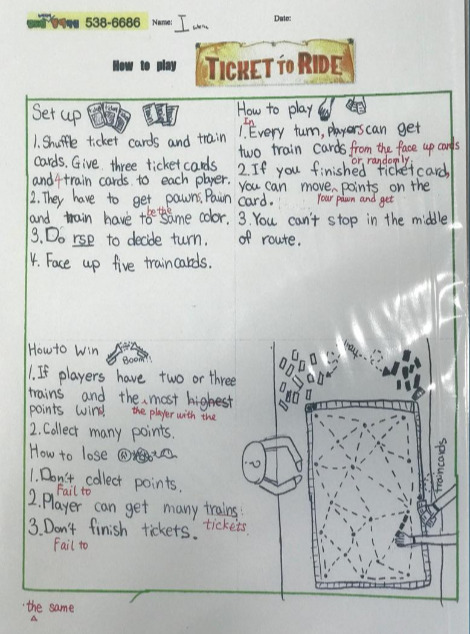 538-6686 Name: Date:
How to play TICKET TO RIDE
Set up
1. Shuffle ticket cards and train
cards. Give three ticket cards
and 4 train cards to each player.
2. They have to get pawn. Pawn
and train have to be the same color.
3. Do rsp to decide turn.
4. Face up five train cards.
How to play
In
1. Every turn, players can get
two train cards from the face up cards
or randomly.
2. If you finished ticket card,
you can move points on the
card. your pawn and get
3. You can't stop in the middle
of route.
How to win
Boom!
1. If players have two or three
trains and the most highest
points win! the player with the
2. Collect many points.
How to lose
1. Don't collect points.
Fail to
2. Player can get many trains.
tickets
3. Don't finish tickets.
Fail to
?
traincards
the same